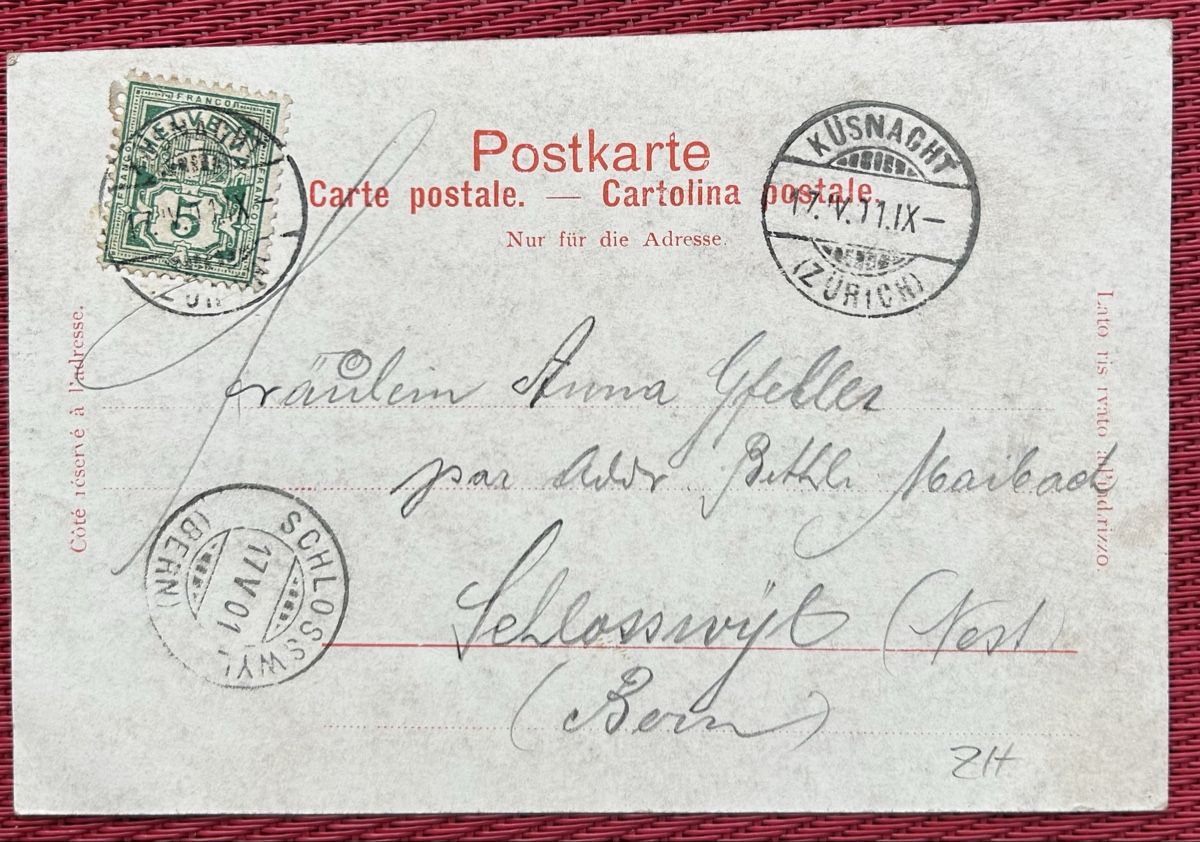 FRANCO
HELVETIA
5
Postkarte
Carte postale. — Cartolina postale.
Nur für die Adresse.
KÜSNACHT
17.V.11.IX–
(ZÜRICH)
Côté réservé à l'adresse.
Lato ris rvato all'ind.rizzo.
Fräulein Anna Gfeller
par Addr. Bethli Maibach
Schlosswyl (Nest)
(Bern)
SCHLOSSWYL
17 V 01
(BERN)
ZH